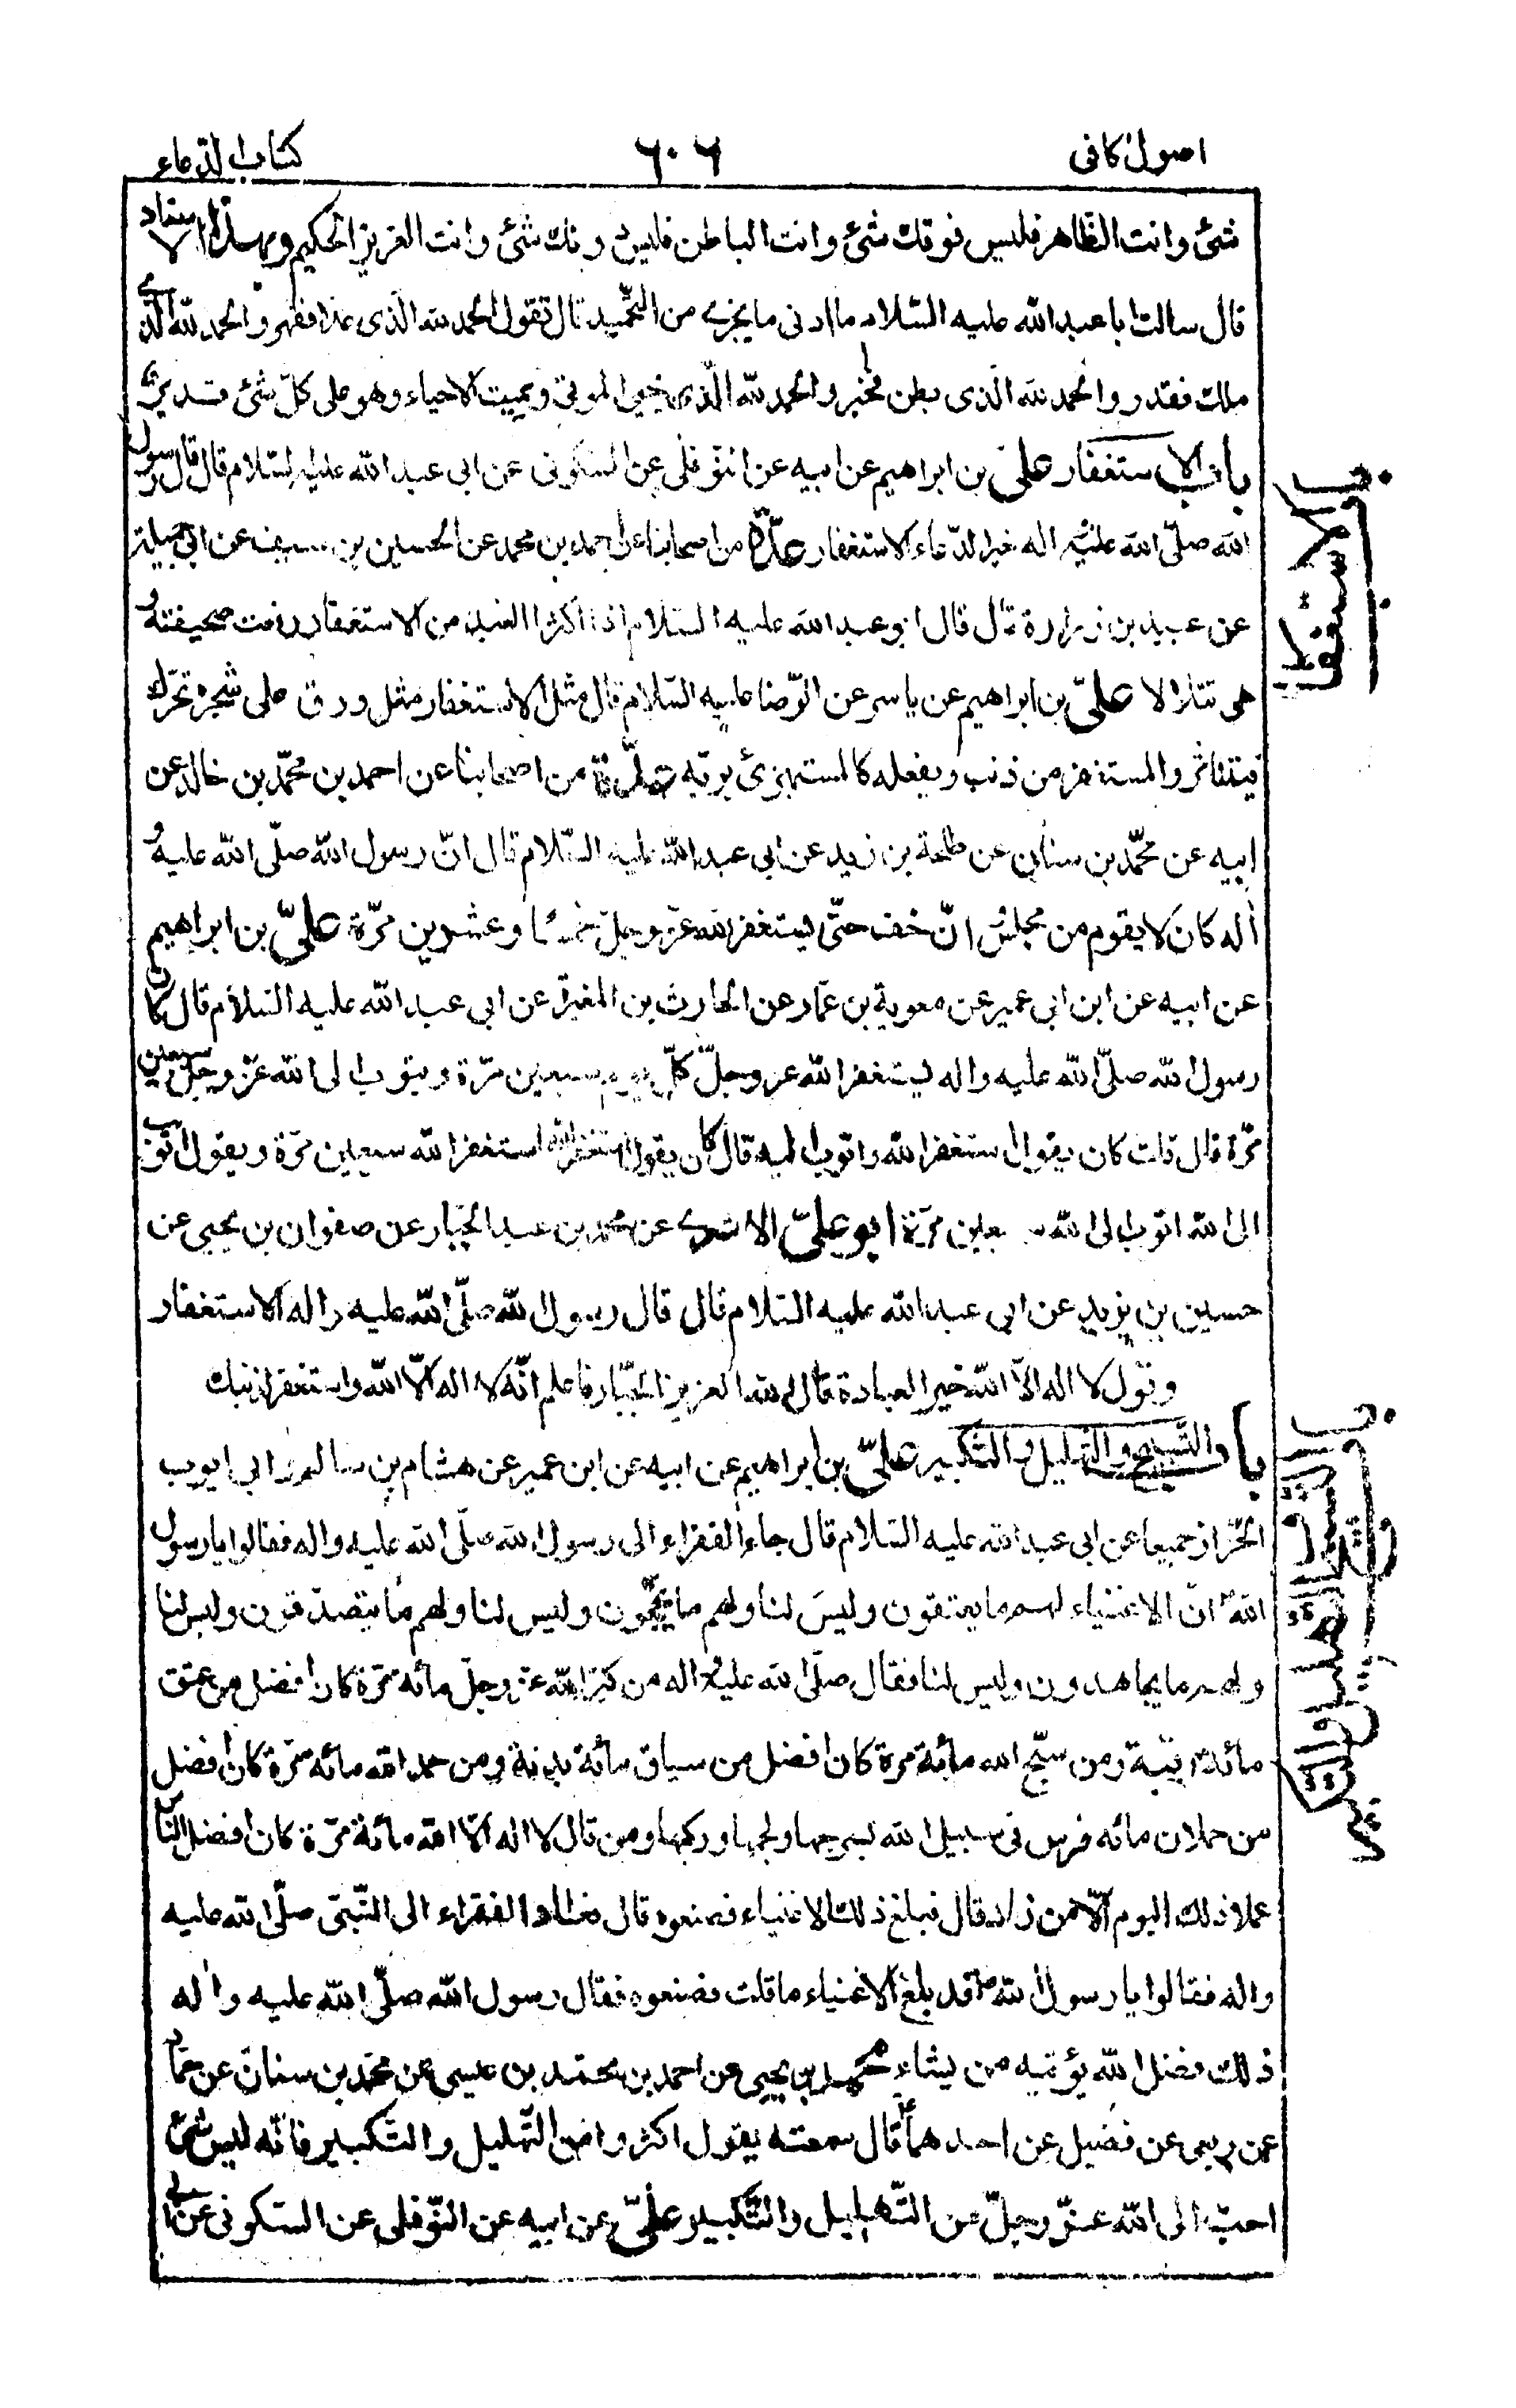 اصول کافی ٦٠٦ کتاب الدعاء
شئ وانت الظاهر فليس فوقك شئ وانت الباطن فليس دونك شئ وانت العزيز الحكيم وبهذا الاسناد
قال سالت ابا عبد الله عليه السّلام ما ادنى ما يجزى من التحميد قال تقول الحمد لله الّذى علا فقهر والحمد لله الّذى
ملك فقدر والحمد لله الّذى بطن فخبر والحمد لله الّذى يحيى الموتى ويميت الاحياء وهو على كلّ شئ قدير
باب الاستغفار علىّ بن ابراهيم عن ابيه عن النوفلى عن السكونى عن ابى عبد الله عليه السّلام قال قال رسول
الله صلّى الله عليه واله خير الدّعاء الاستغفار عدّة من اصحابنا عن احمد بن محمد عن الحسين بن سيف عن ابى جميلة
عن عبيد بن زرارة قال قال ابو عبد الله عليه السّلام اذا اكثر العبد من الاستغفار رفعت صحيفته و
هى تتلالا علىّ بن ابراهيم عن ياسر عن الرّضا عليه السّلام قال مثل الاستغفار مثل ورق على شجرة تحرّك
فيتناثر والمستغفر من ذنب ويفعله كالمستهزئ بربّه عدّة من اصحابنا عن احمد بن محمّد بن خالد عن
ابيه عن محمّد بن سنان عن طلحة بن زيد عن ابى عبد الله عليه السّلام قال انّ رسول الله صلّى الله عليه و
اله كان لا يقوم من مجلس انّ خف حتّى يستغفر الله عزّ وجلّ خمسا وعشرين مرّة علىّ بن ابراهيم
عن ابيه عن ابن ابى عمير عن معوية بن عمّار عن الحارث بن المغيرة عن ابى عبد الله عليه السّلام قال كان
رسول الله صلّى الله عليه واله يستغفر الله عز وجلّ كلّ يوم سبعين مرّة ويتوب الى الله عزّ وجلّ سبعين
مرّة قال قلت كان يقول استغفر الله واتوب اليه قال كان يقول استغفر الله استغفر الله سبعين مرّة ويقول اتوب
الى الله اتوب الى الله سبعين مرّة ابو علىّ الاشعرى عن محمد بن عبد الجبّار عن صفوان بن يحيى عن
حسين بن يزيد عن ابى عبد الله عليه السّلام قال قال رسول الله صلّى الله عليه واله الاستغفار
وقول لا اله الّا الله خير العبادة قال الله العزيز الجبّار فاعلم انّه لا اله الّا الله واستغفر لذنبك
باب التّسبيح والتهليل والتّكبير علىّ بن ابراهيم عن ابيه عن ابن عمير عن هشام بن سالم وابى ايوب
الخزّاز جميعا عن ابى عبد الله عليه السّلام قال جاء الفقراء الى رسول الله صلّى الله عليه واله فقالوا يا رسول
الله انّ الاغنياء لهم ما يعتقون وليس لنا ولهم ما يحجّون وليس لنا ولهم ما يتصدّقون وليس لنا
ولهم ما يجاهدون وليس لنا فقال صلّى الله عليه واله من كبّر الله عزّ وجلّ مائه مرّة كان افضل من عتق
مائة رقبة ومن سبّح الله مائة مرة كان افضل من سياق مائة بدنة ومن حمد الله مائه مرّة كان افضل
من حملان مائه فرس فى سبيل الله بسرجها ولجمها وركبها ومن قال لا اله الّا الله مائة مرّة كان افضل النّاس
عملا ذلك اليوم الّا من زاد قال فبلغ ذلك الاغنياء فصنعوه قال فعاد الفقراء الى النّبىّ صلّى الله عليه
واله فقالوا يا رسول الله قد بلغ الاغنياء ما قلت فصنعوه فقال رسول الله صلّى الله عليه واله
ذلك فضل الله يؤتيه من يشاء محمد بن يحيى عن احمد بن محمّد بن عيسى عن محمّد بن سنان عن حمّاد
عن ربعى عن فضيل عن احدهما قال سمعته يقول اكثروا من التّهليل والتّكبير فانّه ليس شئ
احبّ الى الله عزّ وجلّ من التّهليل والتّكبير علىّ عن ابيه عن النّوفلى عن السّكونى عن ابى
باب الاستغفار
باب التسبيح والتهليل والتكبير